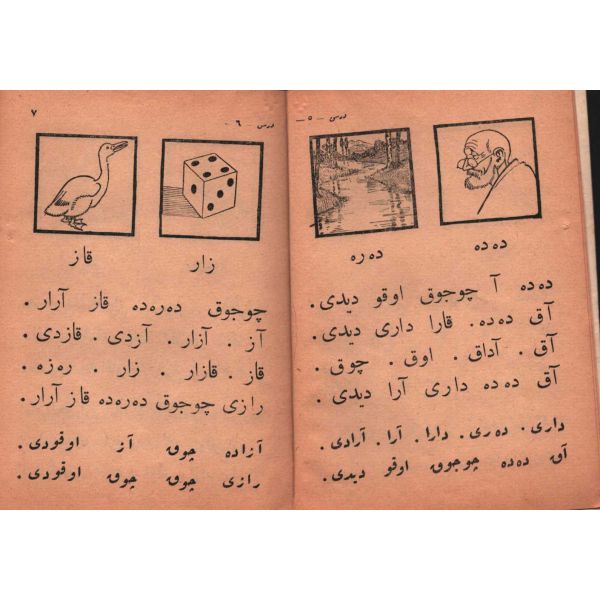 درس - ٥ -
دەدە
دەرە
دەدە آ چوجوق اوقو دیدی.
آق دەدە. قارا داری دیدی.
آق. آداق. اوق. چوق.
آق دەدە داری آرا دیدی.
داری. دەری. دارا. آرا. آرادی.
آق دەدە چوجوق اوقو دیدی.
درس - ٦ -
٧
زار
قاز
چوجوق دەرەدە قاز آرار.
آز. آزار. آزدی. قازدی.
قاز. قازار. زار. رەزە.
رازی چوجوق دەرەدە قاز آرار.
آزادە چوق آز اوقودی.
رازی چوق چوق اوقودی.